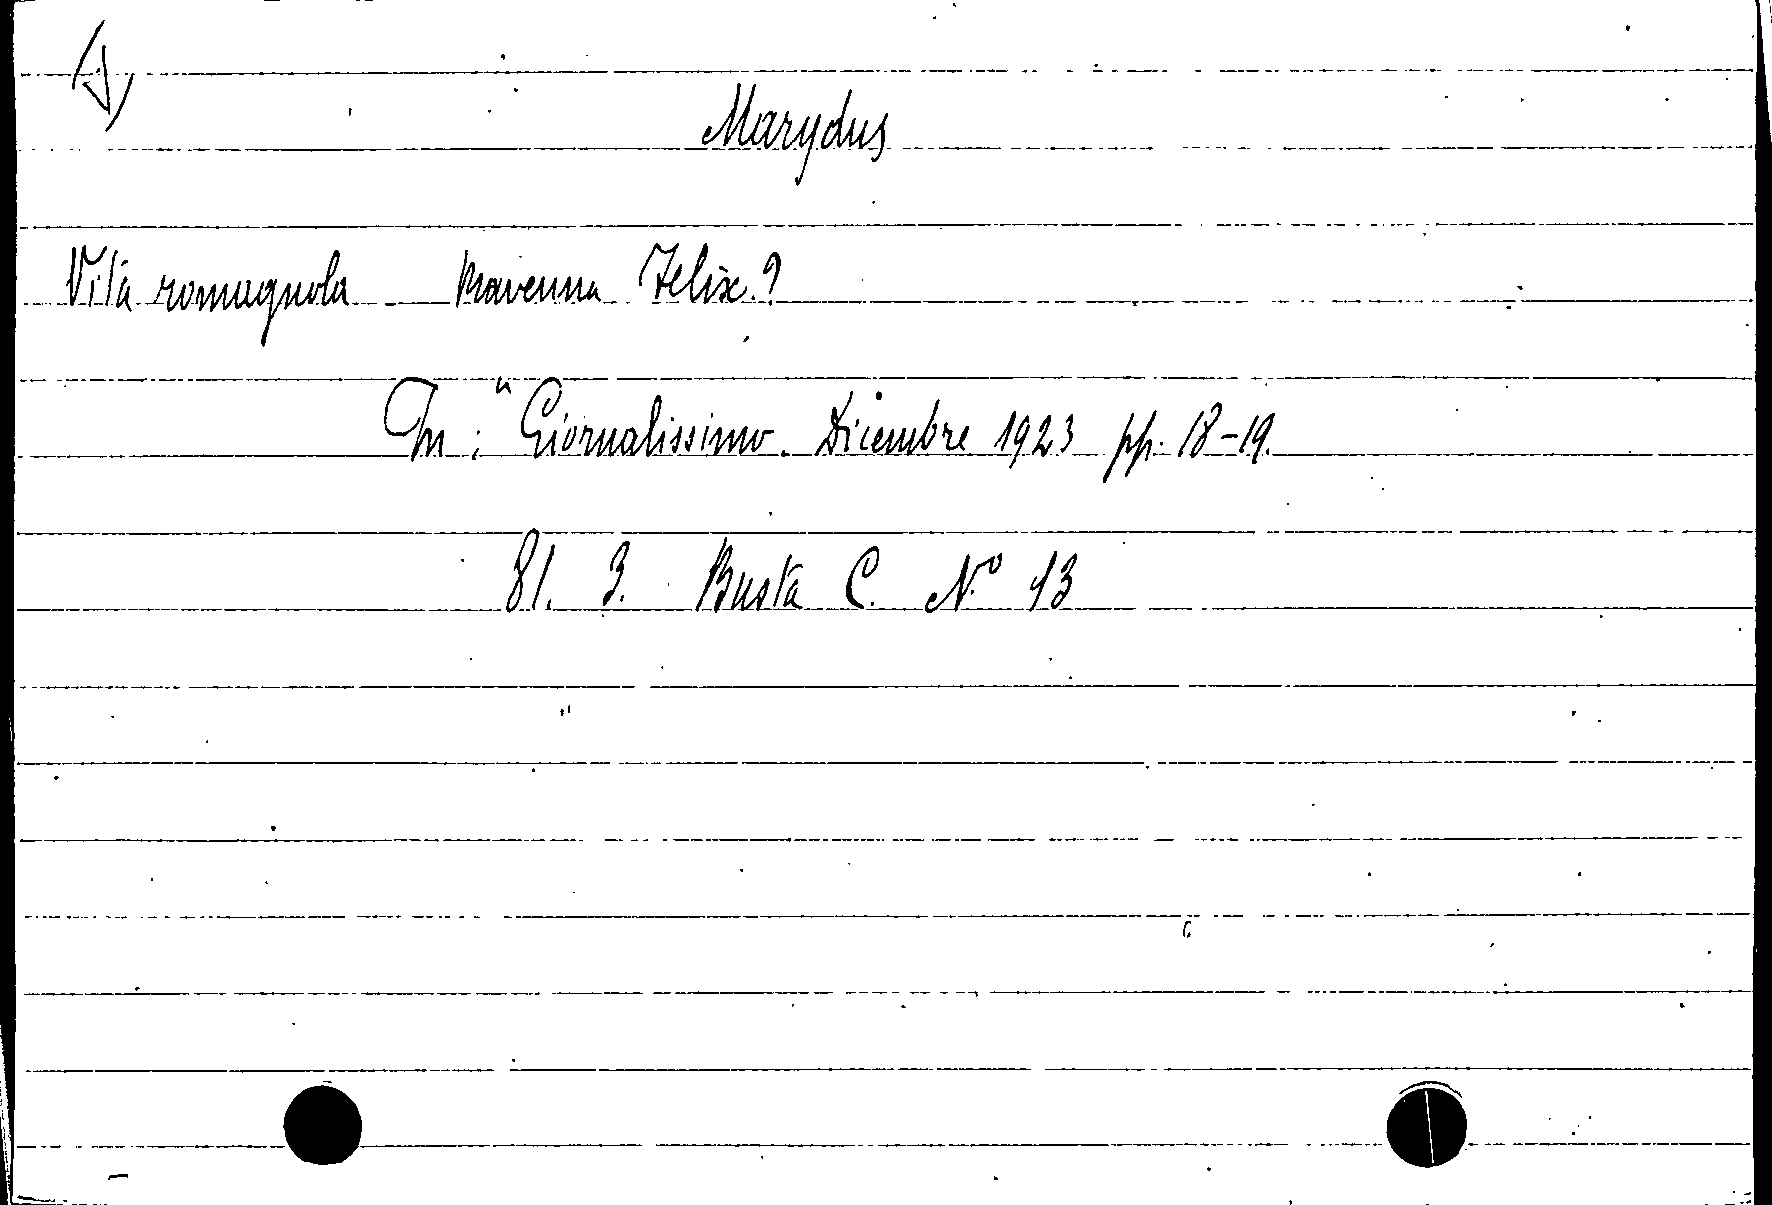 Marydus
Vita romagnola - Ravenna Felix?
In: "Giornalissimo. Dicembre 1923 pp. 18-19.
81. 3. Busta C. N.° 13